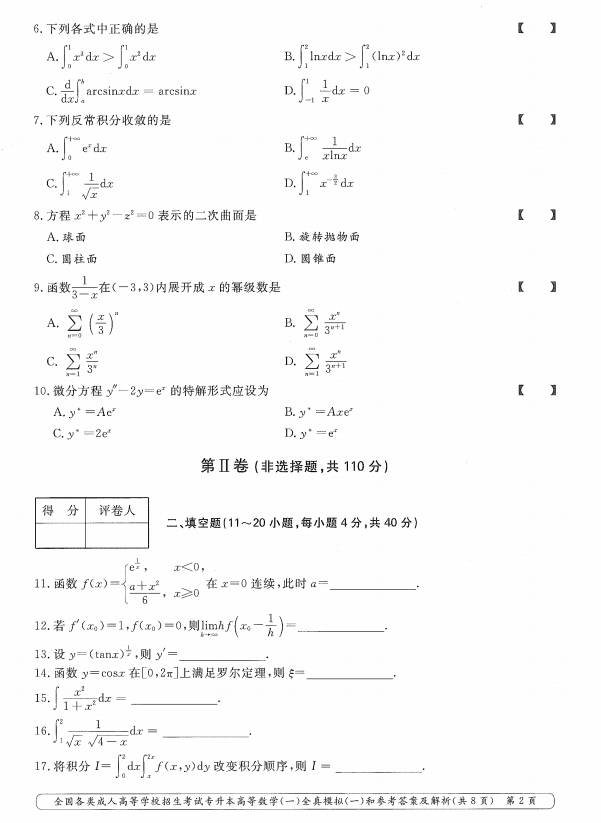 6. 下列各式中正确的是 【 】
A. ∫₀¹ x³dx > ∫₀¹ x²dx B. ∫₁² lnxdx > ∫₁² (lnx)²dx
C. d/dx ∫ₐᵇ arcsinxdx = arcsinx D. ∫₋₁¹ 1/x dx = 0
7. 下列反常积分收敛的是 【 】
A. ∫₀^{+∞} eˣdx B. ∫ₑ^{+∞} 1/(xlnx) dx
C. ∫₁^{+∞} 1/√x dx D. ∫₁^{+∞} x^{-3/2} dx
8. 方程 x²+y²-z²=0 表示的二次曲面是 【 】
A. 球面 B. 旋转抛物面
C. 圆柱面 D. 圆锥面
9. 函数 1/(3-x) 在(-3,3)内展开成 x 的幂级数是 【 】
A. ∑_{n=0}^{∞} (x/3)ⁿ B. ∑_{n=0}^{∞} xⁿ/3ⁿ⁺¹
C. ∑_{n=1}^{∞} xⁿ/3ⁿ D. ∑_{n=1}^{∞} xⁿ/3ⁿ⁺¹
10. 微分方程 y″-2y=eˣ 的特解形式应设为 【 】
A. y* =Aeˣ B. y* =Axeˣ
C. y* =2eˣ D. y* =eˣ
第Ⅱ卷 (非选择题,共 110 分)
得 分 评卷人
二、填空题(11～20 小题,每小题 4 分,共 40 分)
11. 函数 f(x)={e^{1/x}, x<0, (a+x²)/6, x≥0 在 x=0 连续,此时 a=________.
12. 若 f′(x₀)=1,f(x₀)=0,则 lim_{h→∞} hf(x₀-1/h)=________.
13. 设 y=(tanx)^{1/x},则 y′=________.
14. 函数 y=cosx 在[0,2π]上满足罗尔定理,则 ξ=________.
15. ∫ x²/(1+x²) dx = ________.
16. ∫₁² 1/(√x √(4-x)) dx = ________.
17. 将积分 I=∫₀² dx∫ₓ^{2x} f(x,y)dy 改变积分顺序,则 I = ________.
全国各类成人高等学校招生考试专升本高等数学(一)全真模拟(一)和参考答案及解析(共 8 页) 第 2 页